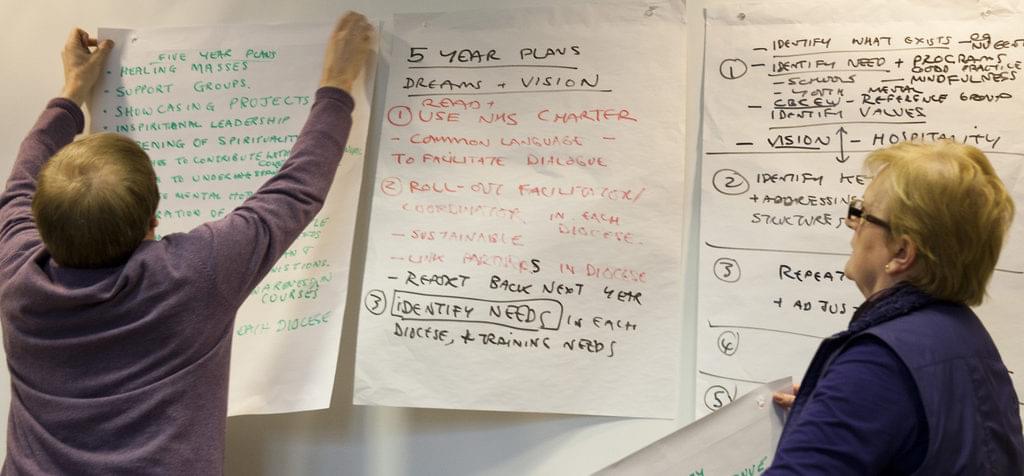 FIVE YEAR PLANS
- HEALING MASSES
- SUPPORT GROUPS.
- SHOWCASING PROJECTS
- INSPIRITIONAL LEADERSHIP
ENING OF SPIRITUALIT
TO CONTRIBUTE WITH
TO
MENTAL
RATION OF
COURSES
EACH DIOCESE
5 YEAR PLANS
DREAMS + VISION
① READ +
USE NHS CHARTER
- COMMON LANGUAGE -
TO FACILITATE DIALOGUE
② ROLL-OUT FACILITATOR/
COORDINATOR IN EACH
DIOCESE.
- SUSTAINABLE
- LINK PARTNERS IN DIOCESE
- REPORT BACK NEXT YEAR
③ IDENTIFY NEEDS IN EACH
DIOCESE, + TRAINING NEEDS
- IDENTIFY WHAT EXISTS - eg
① - IDENTIFY NEED + PROGRAMS
GOOD PRACTICE
- SCHOOLS - MINDFULNESS
- YOUTH MENTAL
- CBCEW - REFERENCE GROUP
IDENTIFY VALUES
- VISION - HOSPITALITY
② IDENTIFY KE
+ ADDRESSING
STRUCTURES
③ REPEAT
+ ADJUS
④
⑤